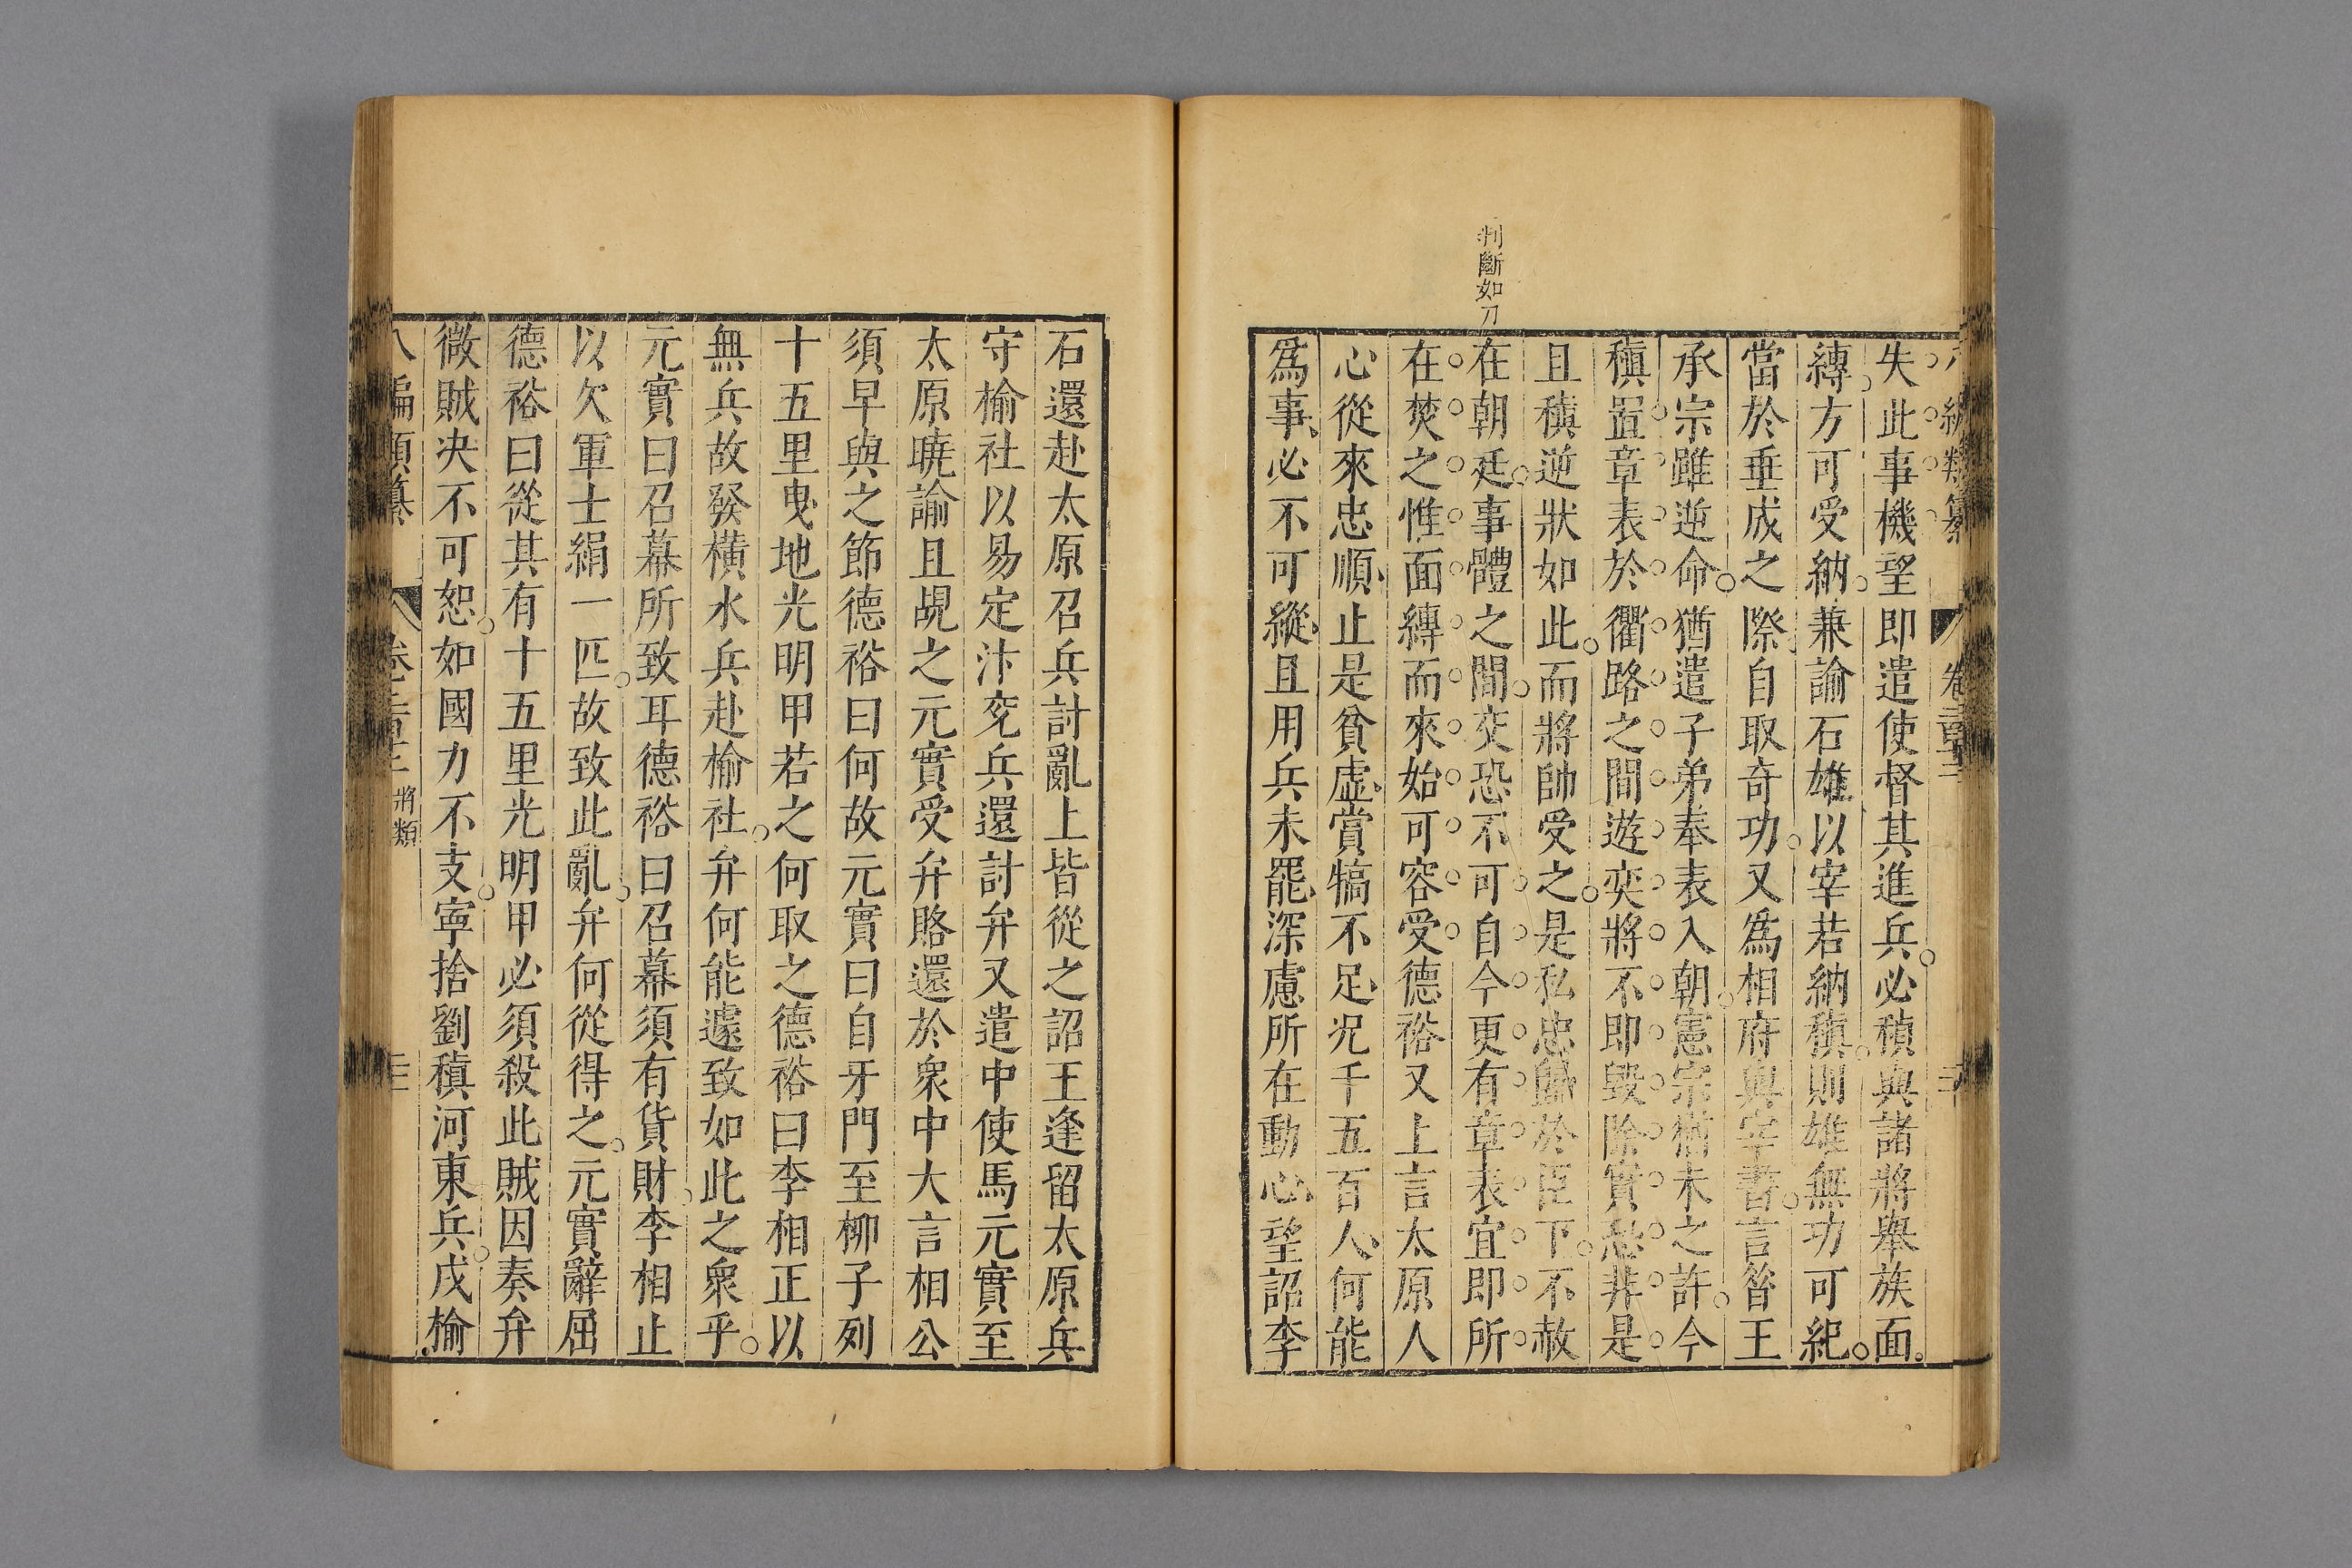 判斷如刀
失此事機望即遣使督其進兵必稹與諸將舉族面
縛方可受納兼諭石雄以宰若納稹則雄無功可紀
當於垂成之際自取奇功又爲相府與宰書言昝王
承宗雖逆命猶遣子弟奉表入朝憲宗猶未之許今
稹置章表於衢路之間遊奕將不即毀除實恐非是
且稹逆狀如此而將帥受之是私忠歸於臣下不赦
在朝廷事體之間交恐不可自今更有章表宜即所
在焚之惟面縛而來始可容受德裕又上言太原人
心從來忠順止是貧虛賞犒不足況千五百人何能
爲事必不可縱且用兵未罷深慮所在動心望詔李
石還赴太原召兵討亂上皆從之詔王逢留太原兵
守榆社以易定汴兗兵還討弁又遣中使馬元實至
太原曉諭且覘之元實受弁賂還於衆中大言相公
須早與之節德裕曰何故元實曰自牙門至柳子列
十五里曳地光明甲若之何取之德裕曰李相正以
無兵故發橫水兵赴榆社弁何能遽致如此之衆乎
元實曰召募所致耳德裕曰召募須有貨財李相止
以欠軍士絹一匹故致此亂弁何從得之元實辭屈
德裕曰從其有十五里光明甲必須殺此賊因奏弁
微賊决不可恕如國力不支寧捨劉稹河東兵戍榆
八編類纂 將類